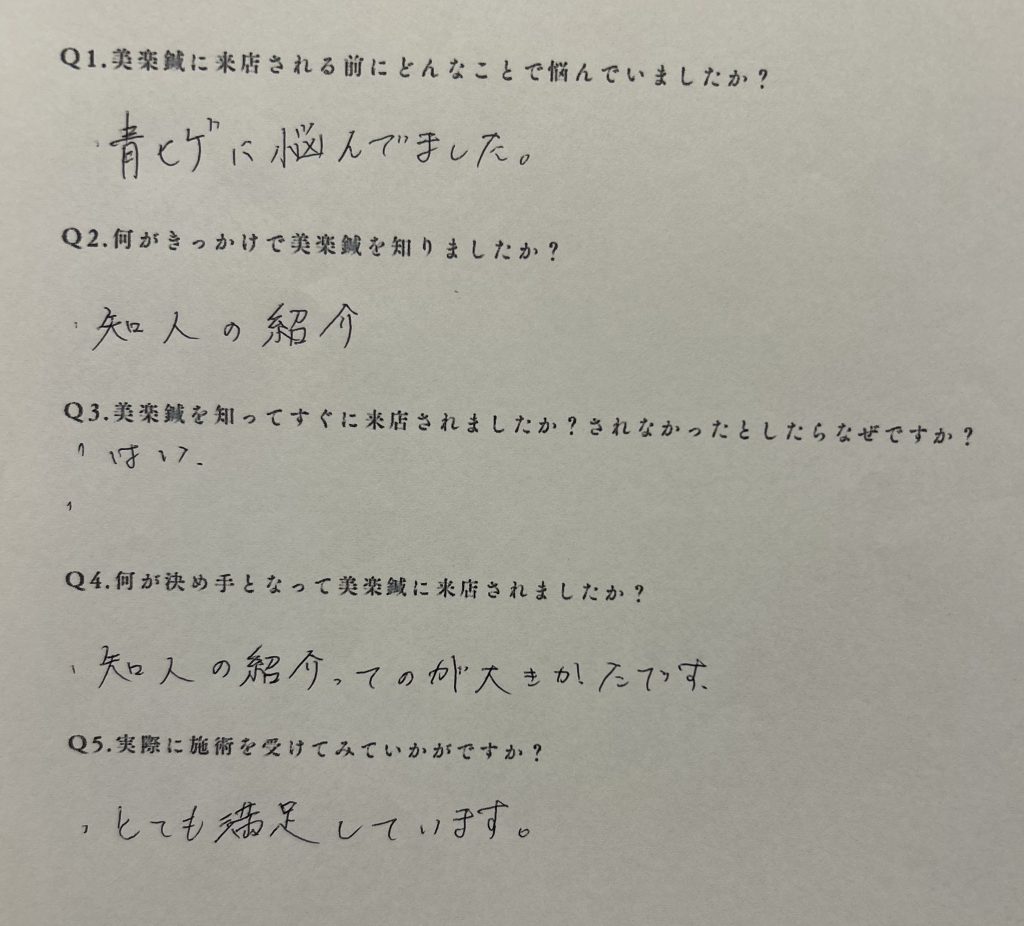 Q1.美楽鍼に来店される前にどんなことで悩んでいましたか？
青ヒゲに悩んでました。
Q2.何がきっかけで美楽鍼を知りましたか？
知人の紹介
Q3.美楽鍼を知ってすぐに来店されましたか？されなかったとしたらなぜですか？
はい.
Q4.何が決め手となって美楽鍼に来店されましたか？
知人の紹介ってのが大きかたです.
Q5.実際に施術を受けてみていかがですか？
とても満足しています。